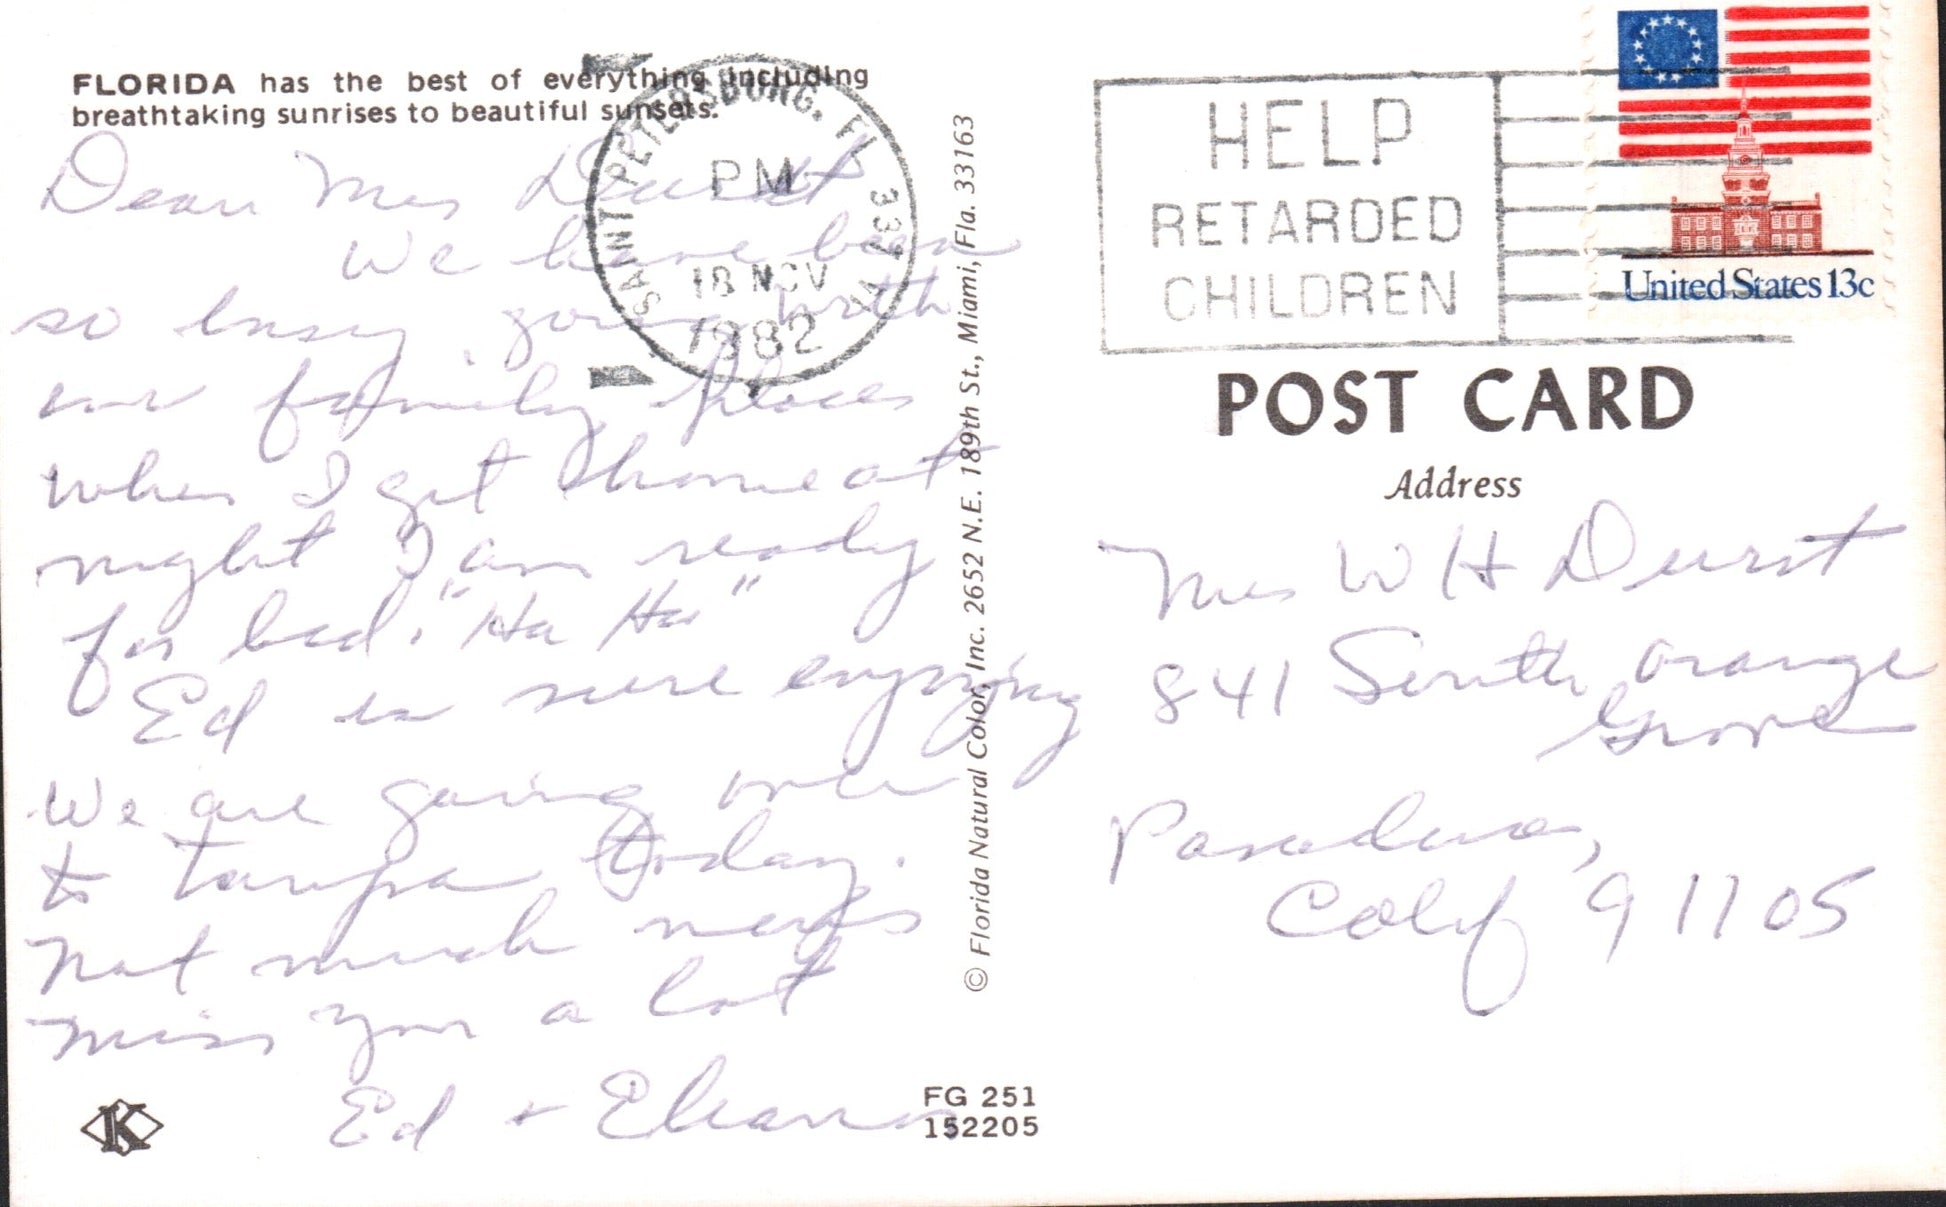 FLORIDA has the best of everything including
breathtaking sunrises to beautiful sunsets.
Dear Mrs Durst
We have been
so busy, going with
our family places
when I get home at
night I am ready
for bed. "Ha Ha"
Ed is sure enjoying
We are going over
to Tampa today.
Not much news
miss you a lot
Ed + Eleanor
K
FG 251
152205
© Florida Natural Color, Inc. 2652 N.E. 189th St., Miami, Fla. 33163
SAINT PETERSBURG, FL 337
PM
18 NOV
1982
HELP
RETARDED
CHILDREN
United States 13c
POST CARD
Address
Mrs W H Durst
841 South Orange
Grove
Pasadena,
Calif 91105